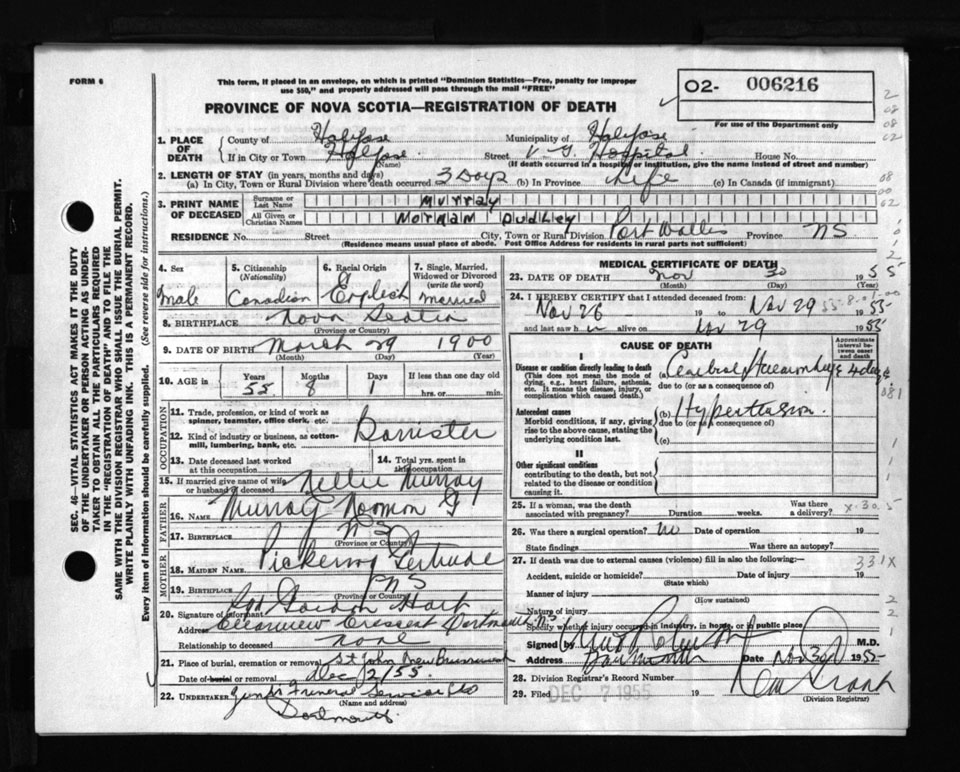 FORM 6
This form, if placed in an envelope, on which is printed "Dominion Statistics—Free, penalty for improper
use $50," and properly addressed will pass through the mail "FREE"
PROVINCE OF NOVA SCOTIA—REGISTRATION OF DEATH
O2- 006216
For use of the Department only
1. PLACE OF DEATH
County of Halifax Municipality of Halifax
If in City or Town Halifax Street V. G. Hospital House No.
(Name) (If death occurred in a hospital or institution, give the name instead of street and number)
2. LENGTH OF STAY (in years, months and days)
(a) In City, Town or Rural Division where death occurred 3 Days (b) In Province Life (c) In Canada (if immigrant)
3. PRINT NAME OF DECEASED
Surname or Last Name Murray
All Given or Christian Names Norman Dudley
RESIDENCE No. Street City, Town or Rural Division Port Wallis Province NS
(Residence means usual place of abode. Post Office Address for residents in rural parts not sufficient)
4. Sex Male
5. Citizenship (Nationality) Canadian
6. Racial Origin English
7. Single, Married, Widowed or Divorced (write the word) Married
8. BIRTHPLACE Nova Scotia
(Province or Country)
9. DATE OF BIRTH March 29 1900
(Month) (Day) (Year)
10. AGE in Years 55 Months 8 Days 1 If less than one day old
hrs. or min.
OCCUPATION
11. Trade, profession, or kind of work as spinner, teamster, office clerk, etc.
Barrister
12. Kind of industry or business, as cotton-mill, lumbering, bank, etc.
13. Date deceased last worked at this occupation
14. Total yrs. spent in this occupation
15. If married give name of wife or husband of deceased Nellie Murray
FATHER
16. NAME Murray Norman G
17. BIRTHPLACE N S
(Province or Country)
MOTHER
18. MAIDEN NAME Pickering Gertrude
19. BIRTHPLACE NS
(Province or Country)
20. Signature of informant Gordon Hart
Address Clearview Crescent Dartmouth N.S.
Relationship to deceased none
21. Place of burial, cremation or removal St John New Brunswick
Date of burial or removal Dec 2/55.
22. UNDERTAKER Funeral Service
(Name and address)
Dartmouth
MEDICAL CERTIFICATE OF DEATH
23. DATE OF DEATH Nov 30 1955
(Month) (Day) (Year)
24. I HEREBY CERTIFY that I attended deceased from:
Nov 26 19 to Nov 29 1955
and last saw h alive on Nov 29 1955
CAUSE OF DEATH
Approximate interval between onset and death
I
Disease or condition directly leading to death
(This does not mean the mode of dying, e.g., heart failure, asthenia, etc. It means the disease, injury, or complication which caused death.)
(a) Cerebral Haemorrhage 4 days
due to (or as a consequence of)
Antecedent causes
Morbid conditions, if any, giving rise to the above cause, stating the underlying condition last.
(b) Hypertension.
due to (or as a consequence of)
(c)
II
Other significant conditions
contributing to the death, but not related to the disease or condition causing it.
25. If a woman, was the death associated with pregnancy? Duration weeks. Was there a delivery?
26. Was there a surgical operation? No Date of operation 19
State findings Was there an autopsy?
27. If death was due to external causes (violence) fill in also the following:
Accident, suicide or homicide? Date of injury 19
(State which)
Manner of injury
(How sustained)
Nature of injury
Specify whether injury occurred in industry, in home, or in public place
Signed by M.D.
Address Dartmouth Date Nov 30 1955
28. Division Registrar's Record Number
29. Filed DEC 7 1955 19
(Division Registrar)
SEC. 46—VITAL STATISTICS ACT MAKES IT THE DUTY
OF THE UNDERTAKER OR PERSON ACTING AS UNDER-
TAKER TO OBTAIN ALL THE PARTICULARS REQUIRED
IN THE "REGISTRATION OF DEATH" AND TO FILE THE
SAME WITH THE DIVISION REGISTRAR WHO SHALL ISSUE THE BURIAL PERMIT.
WRITE PLAINLY WITH UNFADING INK. THIS IS A PERMANENT RECORD.
Every item of information should be carefully supplied. (See reverse side for instructions.)
331X